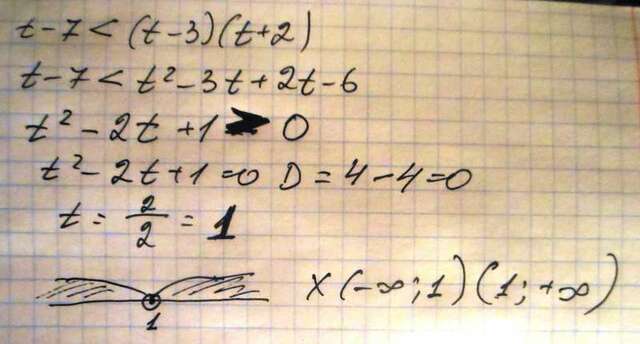 t-7 < (t-3)(t+2)
t-7 < t²-3t+2t-6
t²-2t+1 > 0
t²-2t+1=0 D=4-4=0
t = 2/2 = 1
x(-∞;1)(1;+∞)
1